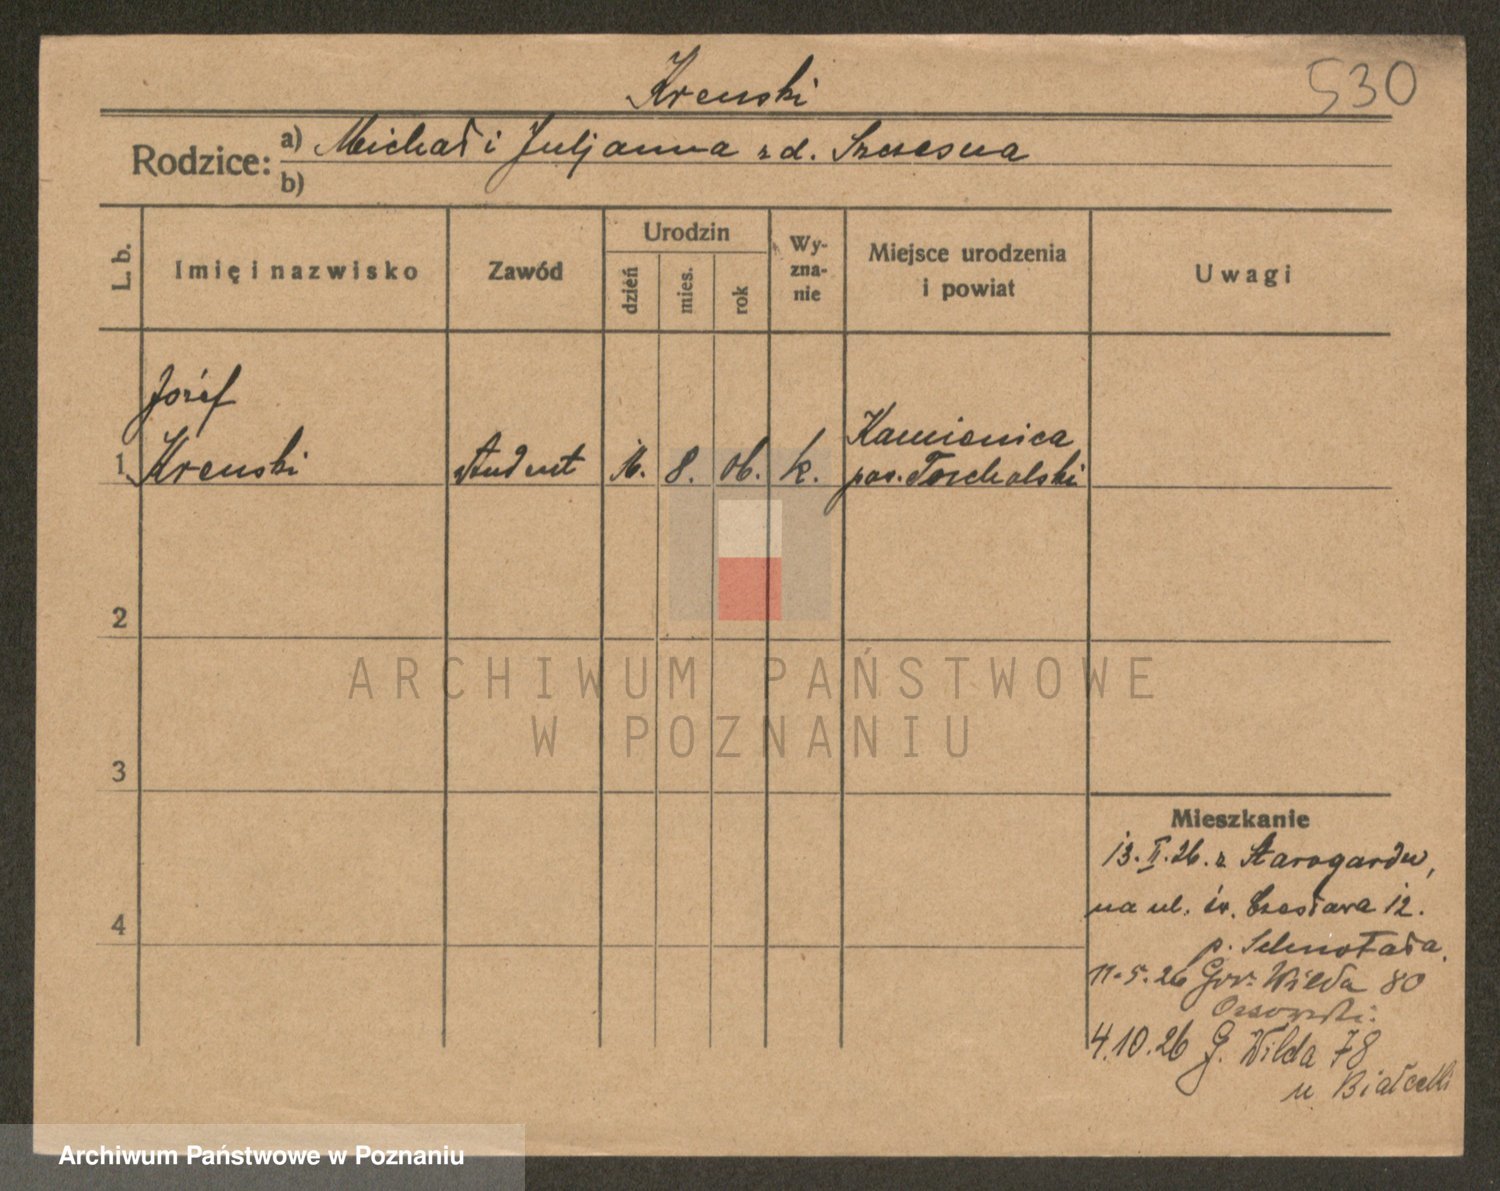 Krenski
530
Rodzice: a) Michał i Juljanna z d. Szczesna
b)
L. b.
Imię i nazwisko
Zawód
Urodzin
dzień
mies.
rok
Wy-
zna-
nie
Miejsce urodzenia
i powiat
Uwagi
Józef
1 Krenski Student 16. 8. 06. k. Kamienica
pow.
2
3
4
ARCHIWUM PAŃSTWOWE
W POZNANIU
Mieszkanie
13.II.26. z Starogardu,
na ul. św. Czesława 12.
p.
11.5.26 Gór. Wilda 80
4.10.26 G. Wilda 78
u
Archiwum Państwowe w Poznaniu